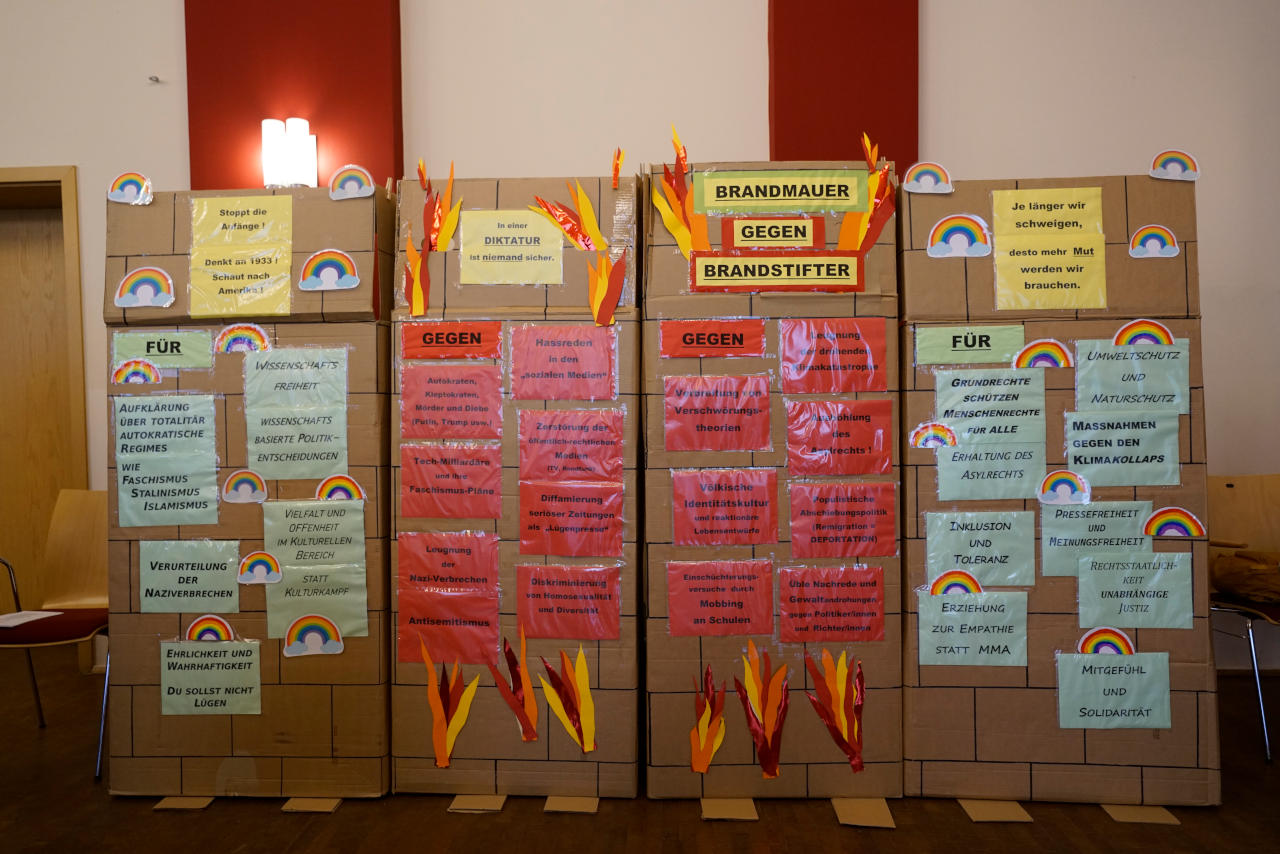 Stoppt die
Anfänge !
Denkt an 1933 !
Schaut nach
Amerika !
FÜR
WISSENSCHAFTS
FREIHEIT
WISSENSCHAFTS
BASIERTE POLITIK-
ENTSCHEIDUNGEN
AUFKLÄRUNG
ÜBER TOTALITÄR
AUTOKRATISCHE
REGIMES
WIE
FASCHISMUS
STALINISMUS
ISLAMISMUS
VIELFALT UND
OFFENHEIT
IM KULTURELLEN
BEREICH
STATT
KULTURKAMPF
VERURTEILUNG
DER
NAZIVERBRECHEN
EHRLICHKEIT UND
WAHRHAFTIGKEIT
DU SOLLST NICHT
LÜGEN
In einer
DIKTATUR
ist niemand sicher.
GEGEN
Autokraten,
Kleptokraten,
Mörder und Diebe
(Putin, Trump usw.)
Tech-Milliardäre
und ihre
Faschismus-Pläne
Leugnung
der
Nazi-Verbrechen
Antisemitismus
Hassreden
in den
„sozialen Medien"
Zerstörung der
öffentlich-rechtlichen
Medien
(TV, Rundfunk)
Diffamierung
seriöser Zeitungen
als „Lügenpresse"
Diskriminierung
von Homosexualität
und Diversität
BRANDMAUER
GEGEN
BRANDSTIFTER
GEGEN
Verbreitung von
Verschwörungs-
theorien
Völkische
Identitätskultur
und reaktionäre
Lebensentwürfe
Einschüchterungs-
versuche durch
Mobbing
an Schulen
Leugnung
der drohenden
Klimakatastrophe
Aushöhlung
des
Asylrechts !
Populistische
Abschiebungspolitik
(Remigration =
DEPORTATION)
Üble Nachrede und
Gewaltandrohungen
gegen Politiker/innen
und Richter/innen
Je länger wir
schweigen,
desto mehr Mut
werden wir
brauchen.
FÜR
GRUNDRECHTE
SCHÜTZEN
MENSCHENRECHTE
FÜR ALLE
ERHALTUNG DES
ASYLRECHTS
INKLUSION
UND
TOLERANZ
ERZIEHUNG
ZUR EMPATHIE
STATT MMA
UMWELTSCHUTZ
UND
NATURSCHUTZ
MASSNAHMEN
GEGEN DEN
KLIMAKOLLAPS
PRESSEFREIHEIT
UND
MEINUNGSFREIHEIT
RECHTSSTAATLICH-
KEIT
UNABHÄNGIGE
JUSTIZ
MITGEFÜHL
UND
SOLIDARITÄT